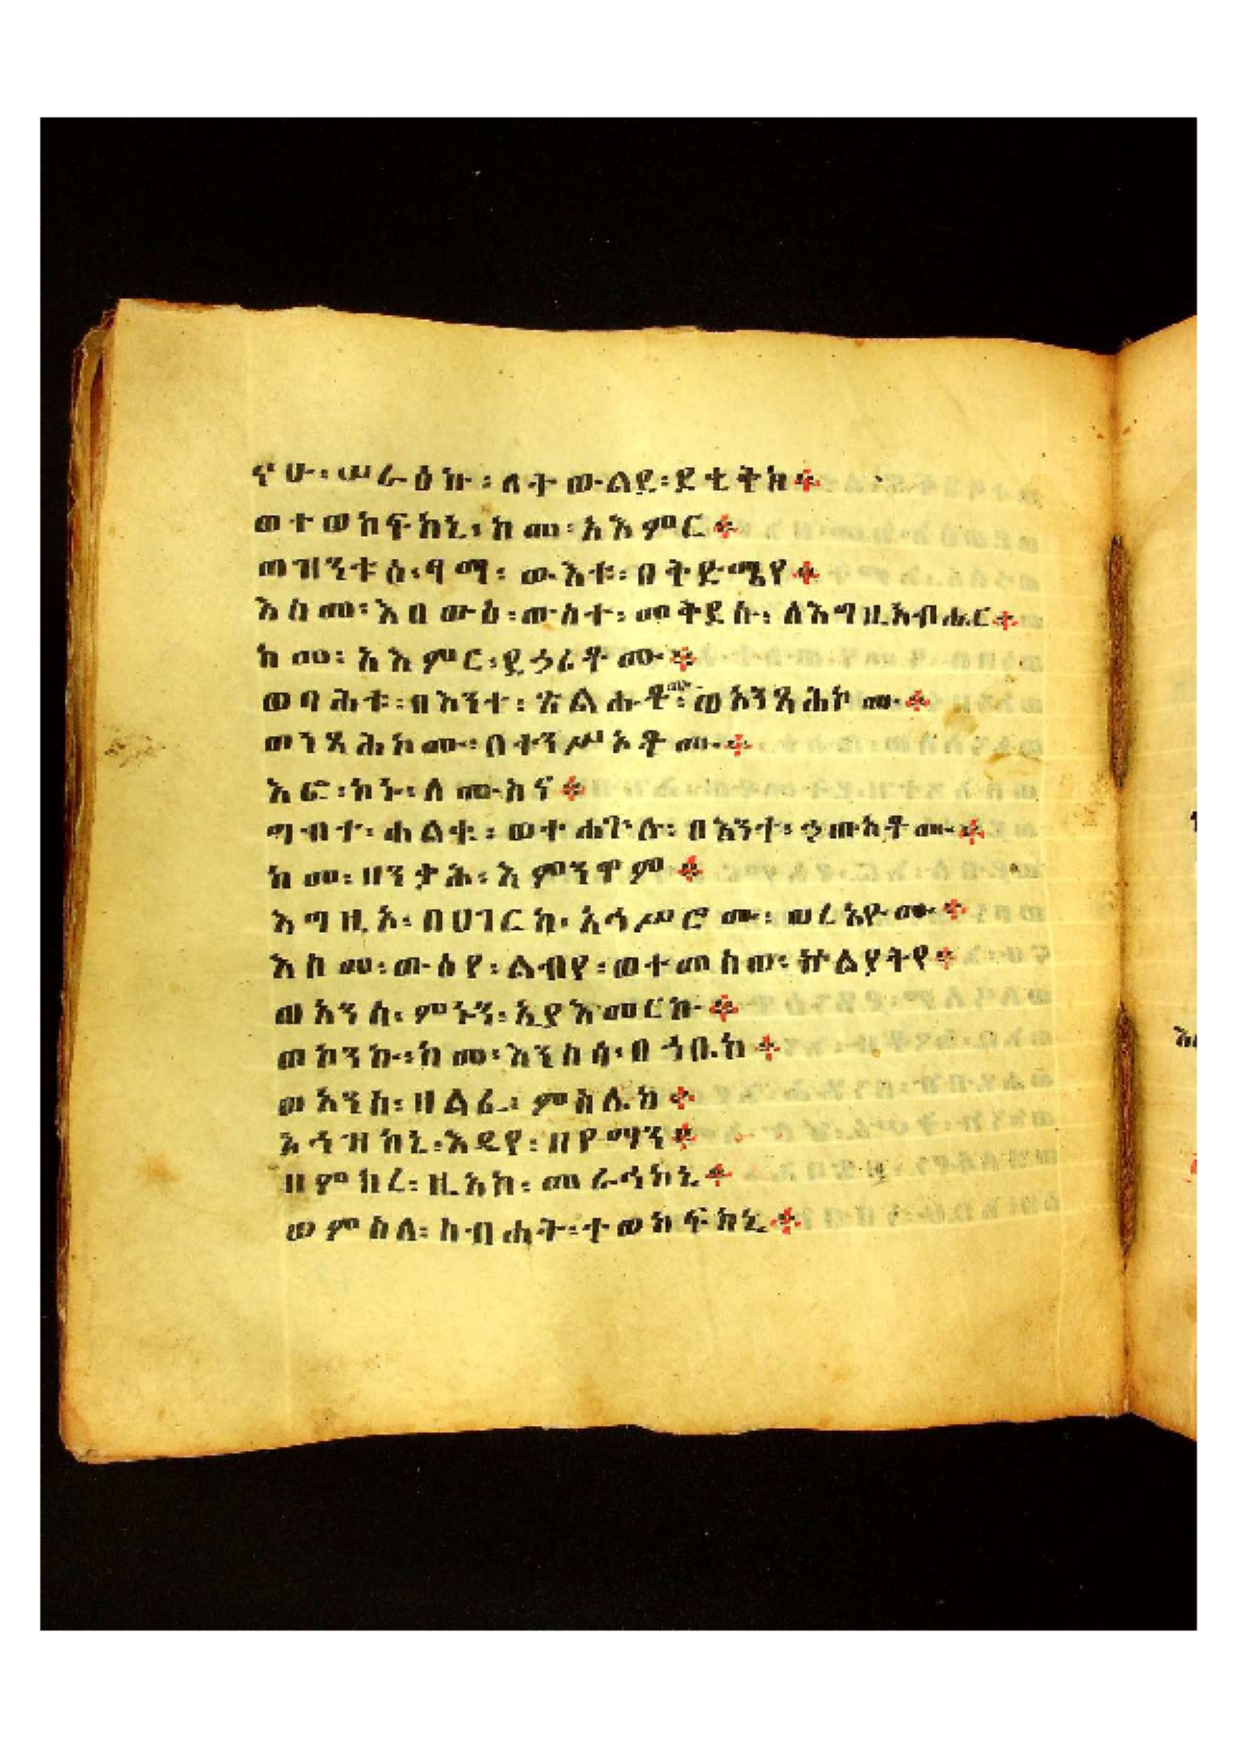 ናሁ፡ሠራዕኩ፡ለትውልደ፡ደቂቅከ፨
ወተወከፍከኒ፡ከመ፡አእምር፨
ወዝንቱሰ፡ፃማ፡ውእቱ፡በቅድሜየ፨
እስከመ፡እበውዕ፡ውስተ፡መቅደሱ፡ለእግዚአብሔር፨
ከመ፡አእምር፡ደኃሪቶሙ፨
ወባሕቱ፡በእንተ፡ጽልሑቶሙ፡ወአንጻሕኮሙ፨
ወነጻሕከሙ፡በተንሥኦቶሙ፨
እፎ፡ኮኑ፡ለሙስና፨
ግብተ፡ሐልቁ፡ወተሐጕሉ፡በእንተ፡ኃጢአቶሙ፨
ከመ፡ዘንቃሕ፡እምንዋም፨
እግዚኦ፡በሀገርከ፡አኅሥሮሙ፡ወረአዮሙ፨
እስመ፡ውዕየ፡ልብየ፡ወተመስወ፡ኵልያትየ፨
ወአንሰ፡ምኑን፡ኢያእመርኩ፨
ወኮንኩ፡ከመ፡እንስሳ፡በኀቤከ፨
ወአንሰ፡ዘልፈ፡ምስሌከ፨
አኀዝከኒ፡እዴየ፡ዘየማን፨
ዘምክረ፡ዚአከ፡መራኅከኒ፨
ወምስለ፡ስብሐት፡ተወከፍከኒ፨